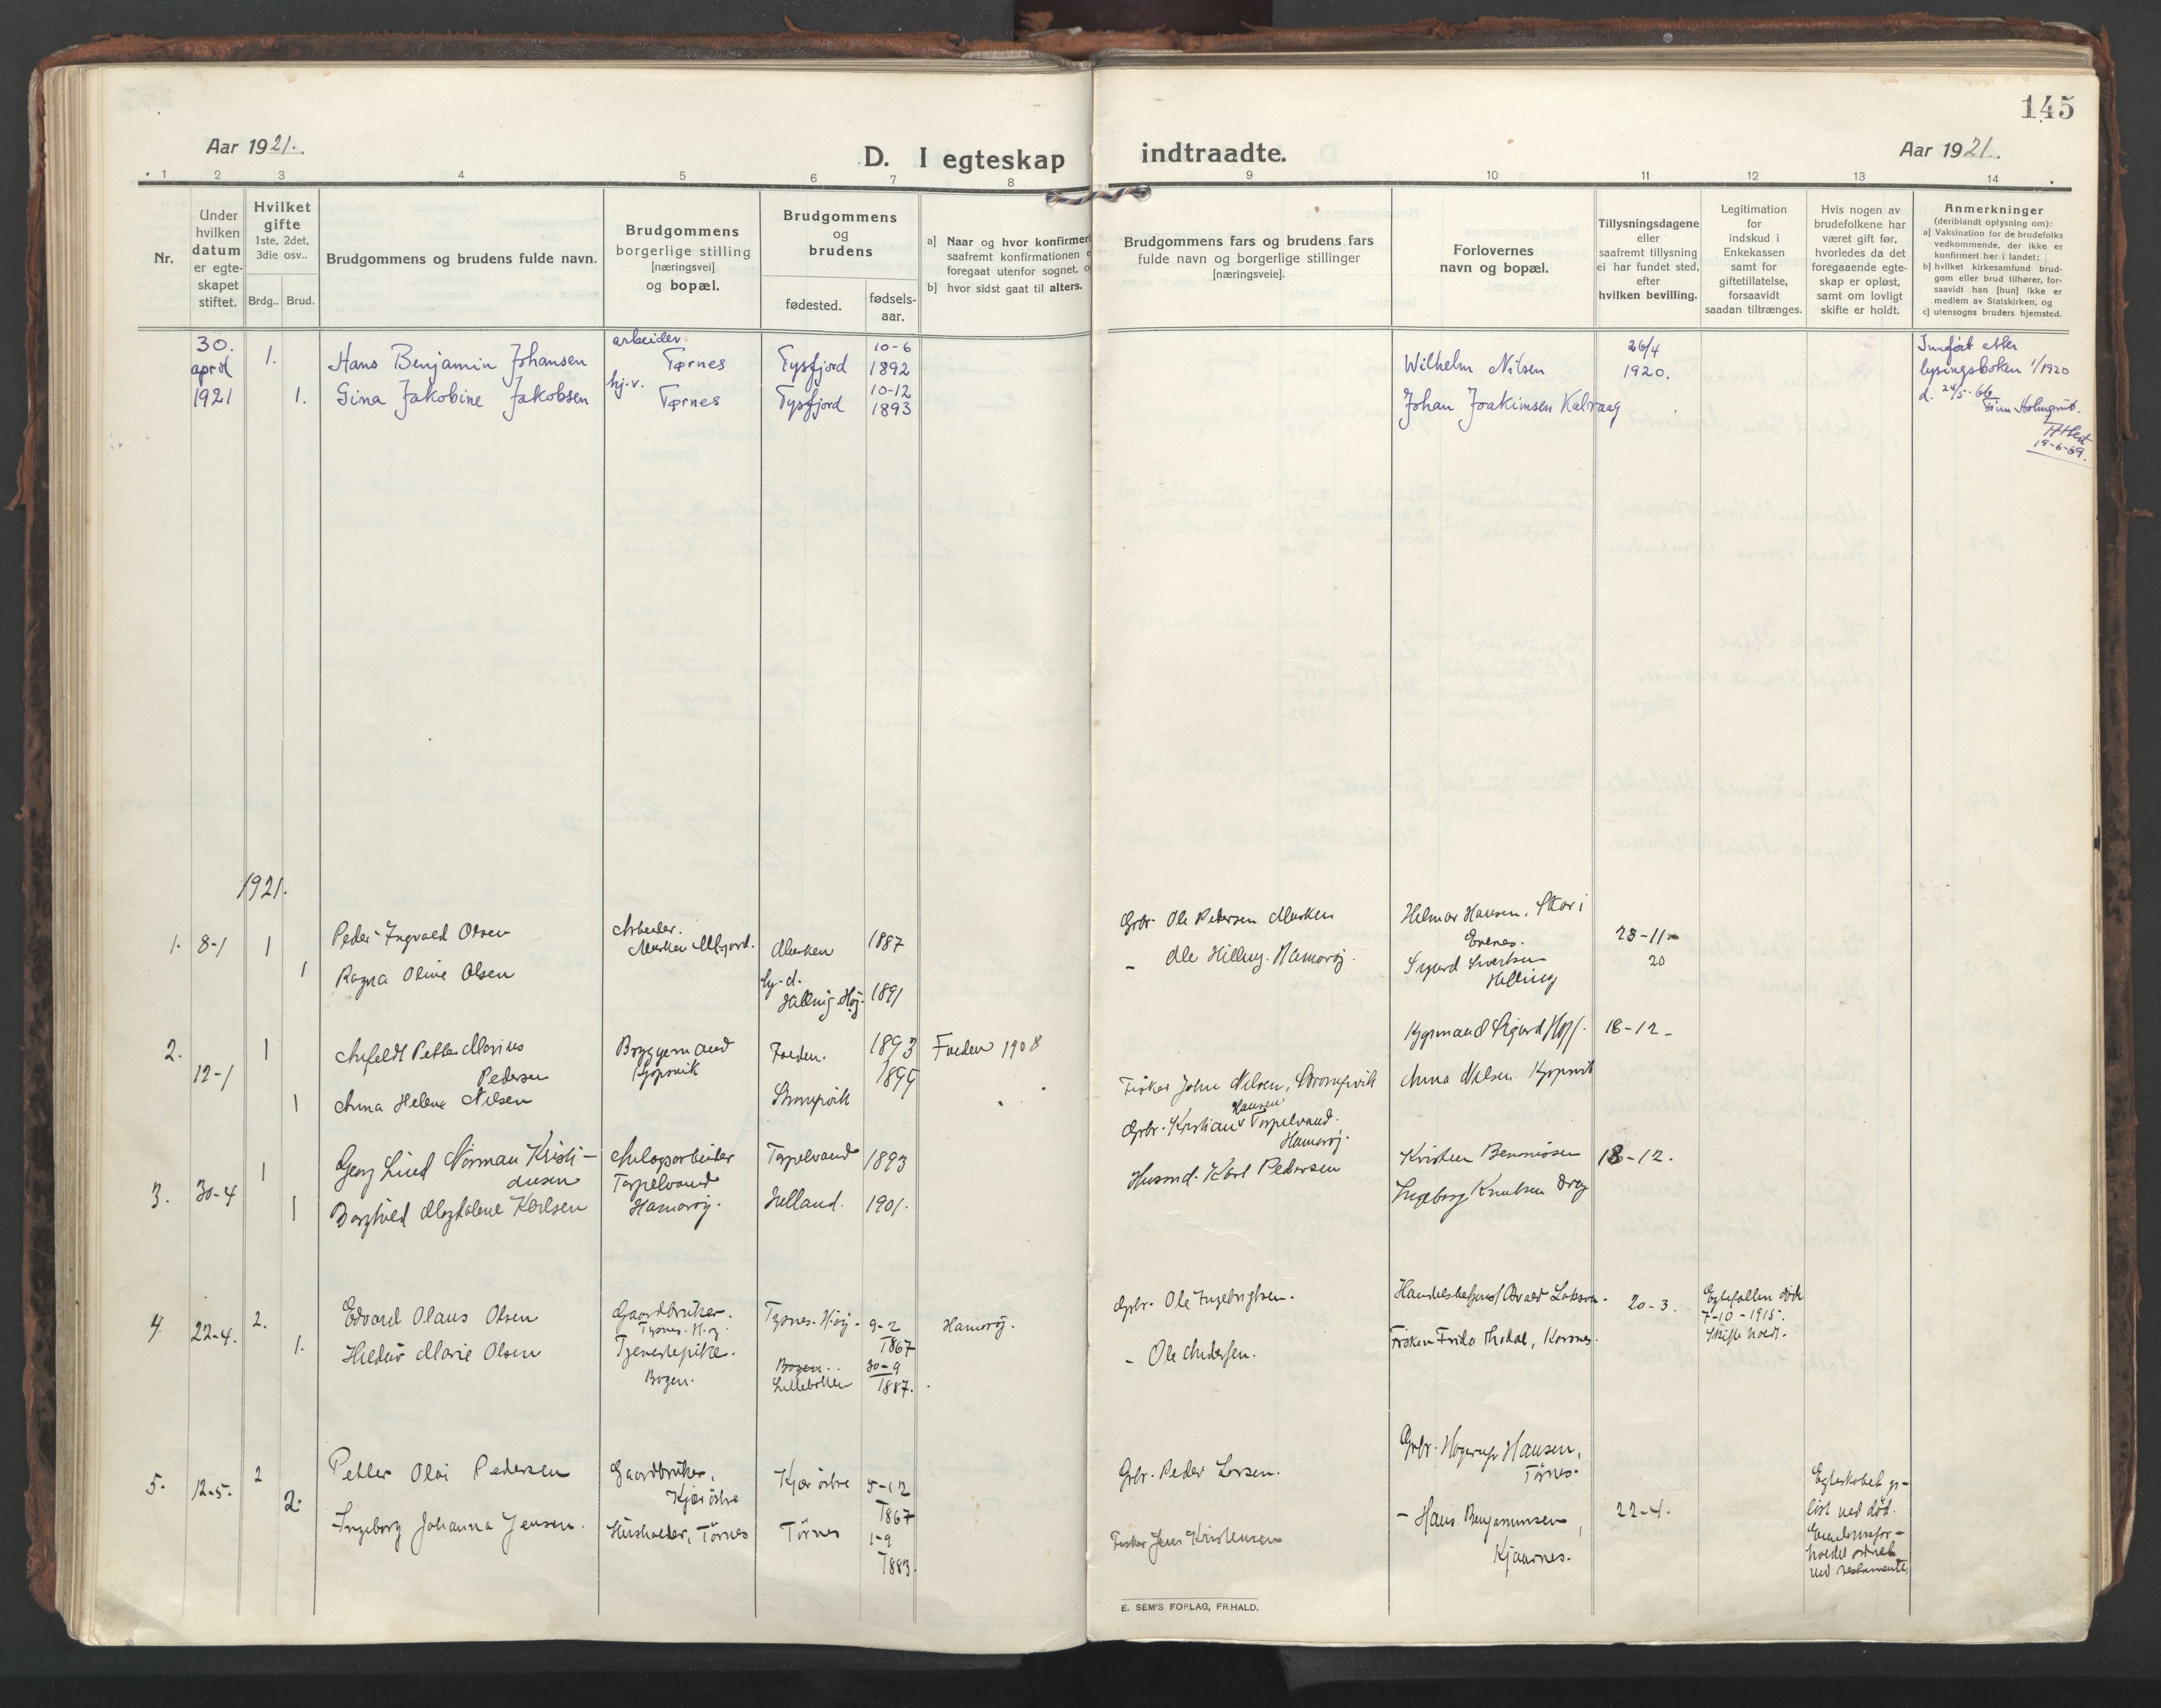 145
Aar 1921.
D. I egteskap indtraadte.
Aar 1921.
1 2 3 4 5 6 7 8 9 10 11 12 13 14
Nr.
Under
hvilken
datum
er egte-
skapet
stiftet.
Hvilket
gifte
1ste, 2det,
3die osv..
Brdg.. Brud.
Brudgommens og brudens fulde navn.
Brudgommens
borgerlige stilling
[næringsvei]
og bopæl.
Brudgommens
og
brudens
fødested.
fødsels-
aar.
a] Naar og hvor konfirmert
saafremt konfirmationen
foregaat utenfor sognet,
b] hvor sidst gaat til alters.
Brudgommens fars og brudens fars
fulde navn og borgerlige stillinger
[næringsveie].
Forlovernes
navn og bopæl.
Tillysningsdagene
eller
saafremt tillysning
ei har fundet sted,
efter
hvilken bevilling.
Legitimation
for
indskud i
Enkekassen
samt for
giftetillatelse,
forsaavidt
saadan tiltrænges.
Hvis nogen av
brudefolkene har
været gift før,
hvorledes da det
foregaaende egte-
skap er opløst,
samt om lovligt
skifte er holdt.
Anmerkninger
(deriblandt oplysning om):
a] Vaksination for de brudefolks
vedkommende, der ikke er
konfirmert her i landet;
b] hvilket kirkesamfund brud-
gom eller brud tilhører, for-
saavidt han [hun] ikke er
medlem av Statskirken, og
c] utensogns bruders hjemsted.
30.
april
1921
1.
Hans Benjamin Johansen
arbeider
Tørnes
Tysfjord
10-6
1892
Wilhelm Nilsen
26/4
1920.
Innført etter
lysingsboken 1/1920
d. 24/5-66
19-6-69.
1.
Gina Jakobine Jakobsen
hj.v.
Tørnes
Tysfjord
10-12
1893
Johan Joakimsen Kalvaag
1921.
1. 8-1 1
Peder Ingvald Olsen
Arbeider.
Musken
1887
Grbr. Ole Petersen Musken
Helmar Hansen,
Evenes.
23-11-
20
1
Ragna Oline Olsen
1891
Hamarøj.
Sigurd Sivertsen
Helling
2. 12-1 1
Petter Marius
Pedersen
Bryggemand
Kjøpsvik
1893
1908
Sigurd
18-12-
1
Anna Helene Nilsen
1899
Fisker John Nilsen,
Anna Nilsen Kjøpsvik
3. 30-4 1
Georg Lind Norman Kristi-
ansen
Anlægsarbeider
Tørpelvand
Hamarøj.
Tørpelvand
1893
Grbr. Kristian Hansen Tørpelvand.
Hamarøj.
18-12.
1
Borghild Magdalene Karlsen
1901.
Husmd. Karl Pedersen
Ingeborg Knutsen Drag
4 22-4. 2.
Edvard Olaus Olsen
Gaardbruker.
9-2
1867
Hamarøj.
Grbr. Ole Ingebrigtsen.
20-3.
7-10-1915.
Skifte holdt.
1.
Hildur Marie Olsen
Tjenestepike.
Bogen.
Bogen.
30-9
1887.
- Ole Andersen.
Frøken Frida Korsnes.
5. 12-5. 2
Petter Olai Pedersen
Gaardbruker,
Kjær østre
Kjær østre
5-12
1867
Grbr. Peder Larsen.
Hansen,
Tørnes.
22-4.
Egteskabet op-
løst ved død.
ved testamente,
2.
Ingeborg Johanna Jensen.
Husholder, Tørnes
Tørnes
1-9
1883.
Fisker Jens Kristensen
- Hans Benjaminsen,
Kjaarnes.
E. SEM'S FORLAG, FR.HALD.